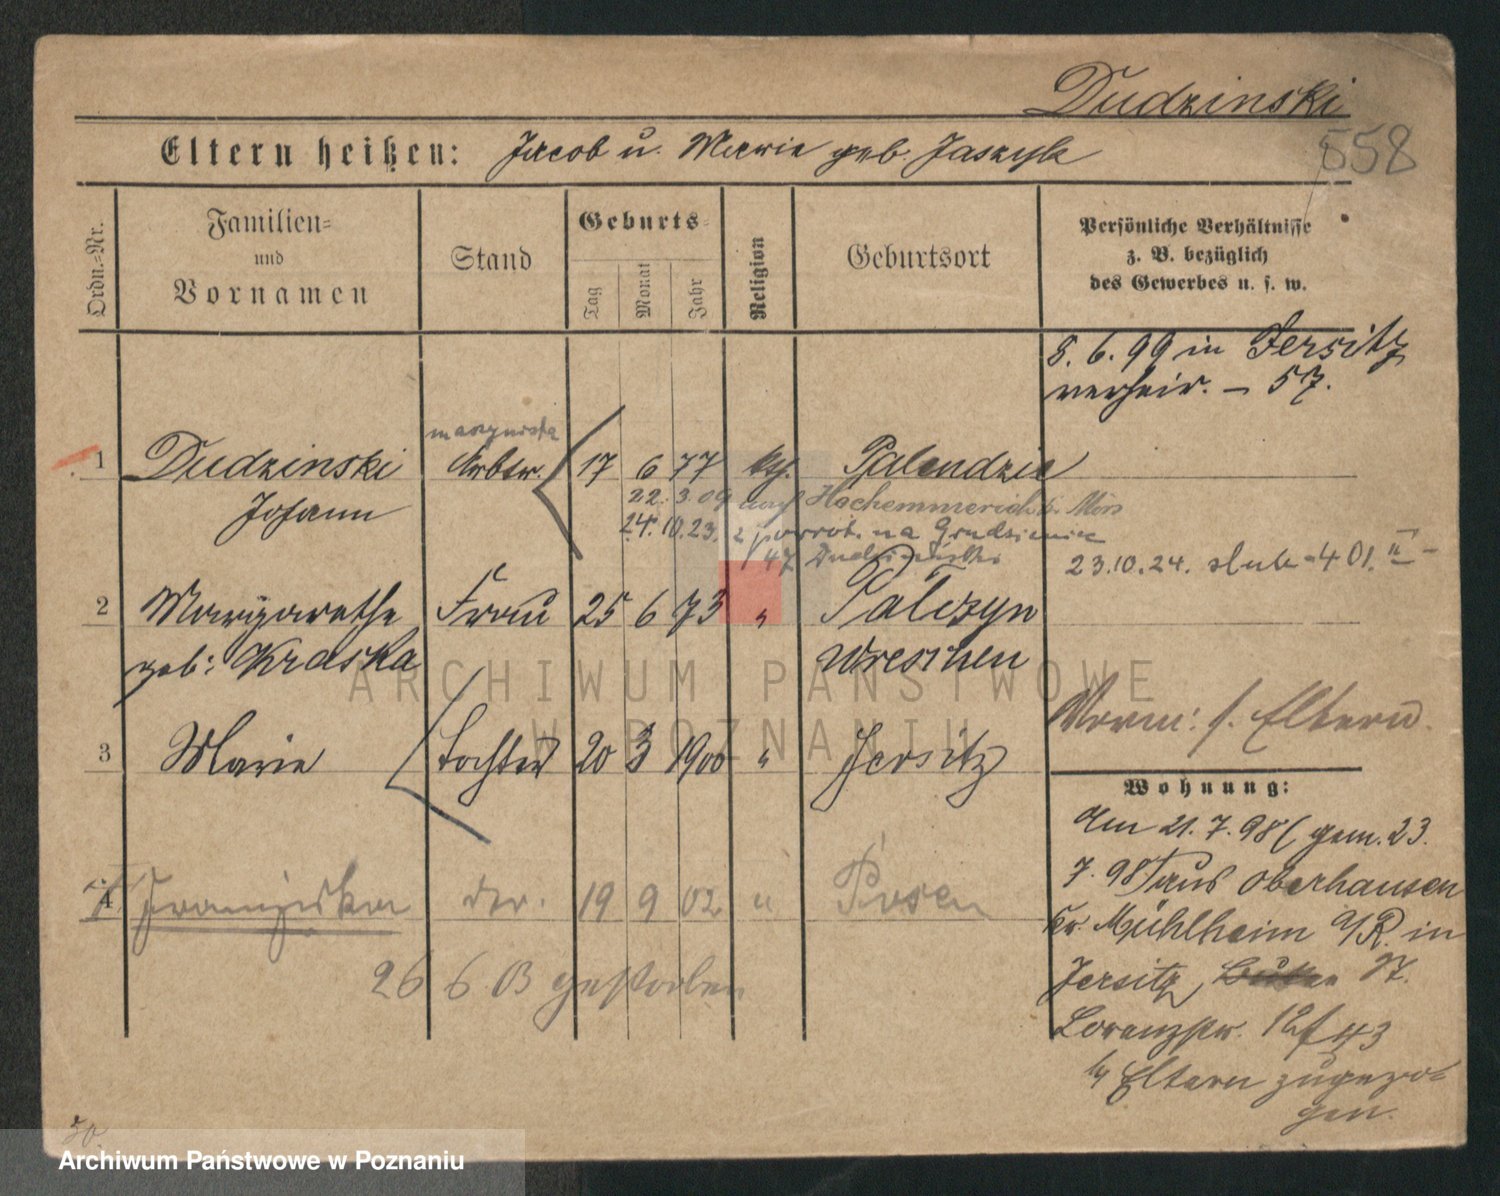 Dudzinski
558
Eltern heißen: Jacob u. Marie geb. Jaszyk
Ordn.=Nr.
Familien=
und
Vornamen
Stand
Geburts=
Tag
Monat
Jahr
Religion
Geburtsort
Persönliche Verhältnisse
z. B. bezüglich
des Gewerbes u. s. w.
8. 6. 99 in Jersitz
verheir. – 57.
maszynista
1 Dudzinski Arbtr. 17 6 77 kth. Palendzie
Johann
22. 3. 09 nach Hochemmerich b. Mörs
24. 10. 23. z powrot. na Grudzieniec
47 Dudzinski
23.10.24. slub - 401. II -
2 Margarethe Frau 25 6 73 " Pałczyn
geb: Kraska Wreschen
3 Marie Tochter 20 3 1900 " Jersitz
Verm: s. Eltern.
Wohnung:
Am 21. 7. 98 (gem. 23.
7. 98) aus Oberhausen
Kr. Mühlheim a/R. in
Jersitz, St.
Lorenzstr. 12 43
b/ Eltern zugezo-
gen.
4 Franziska do. 19 9 02 " Posen
26 6 03 gestorben
ARCHIWUM PAŃSTWOWE
W POZNANIU
Archiwum Państwowe w Poznaniu